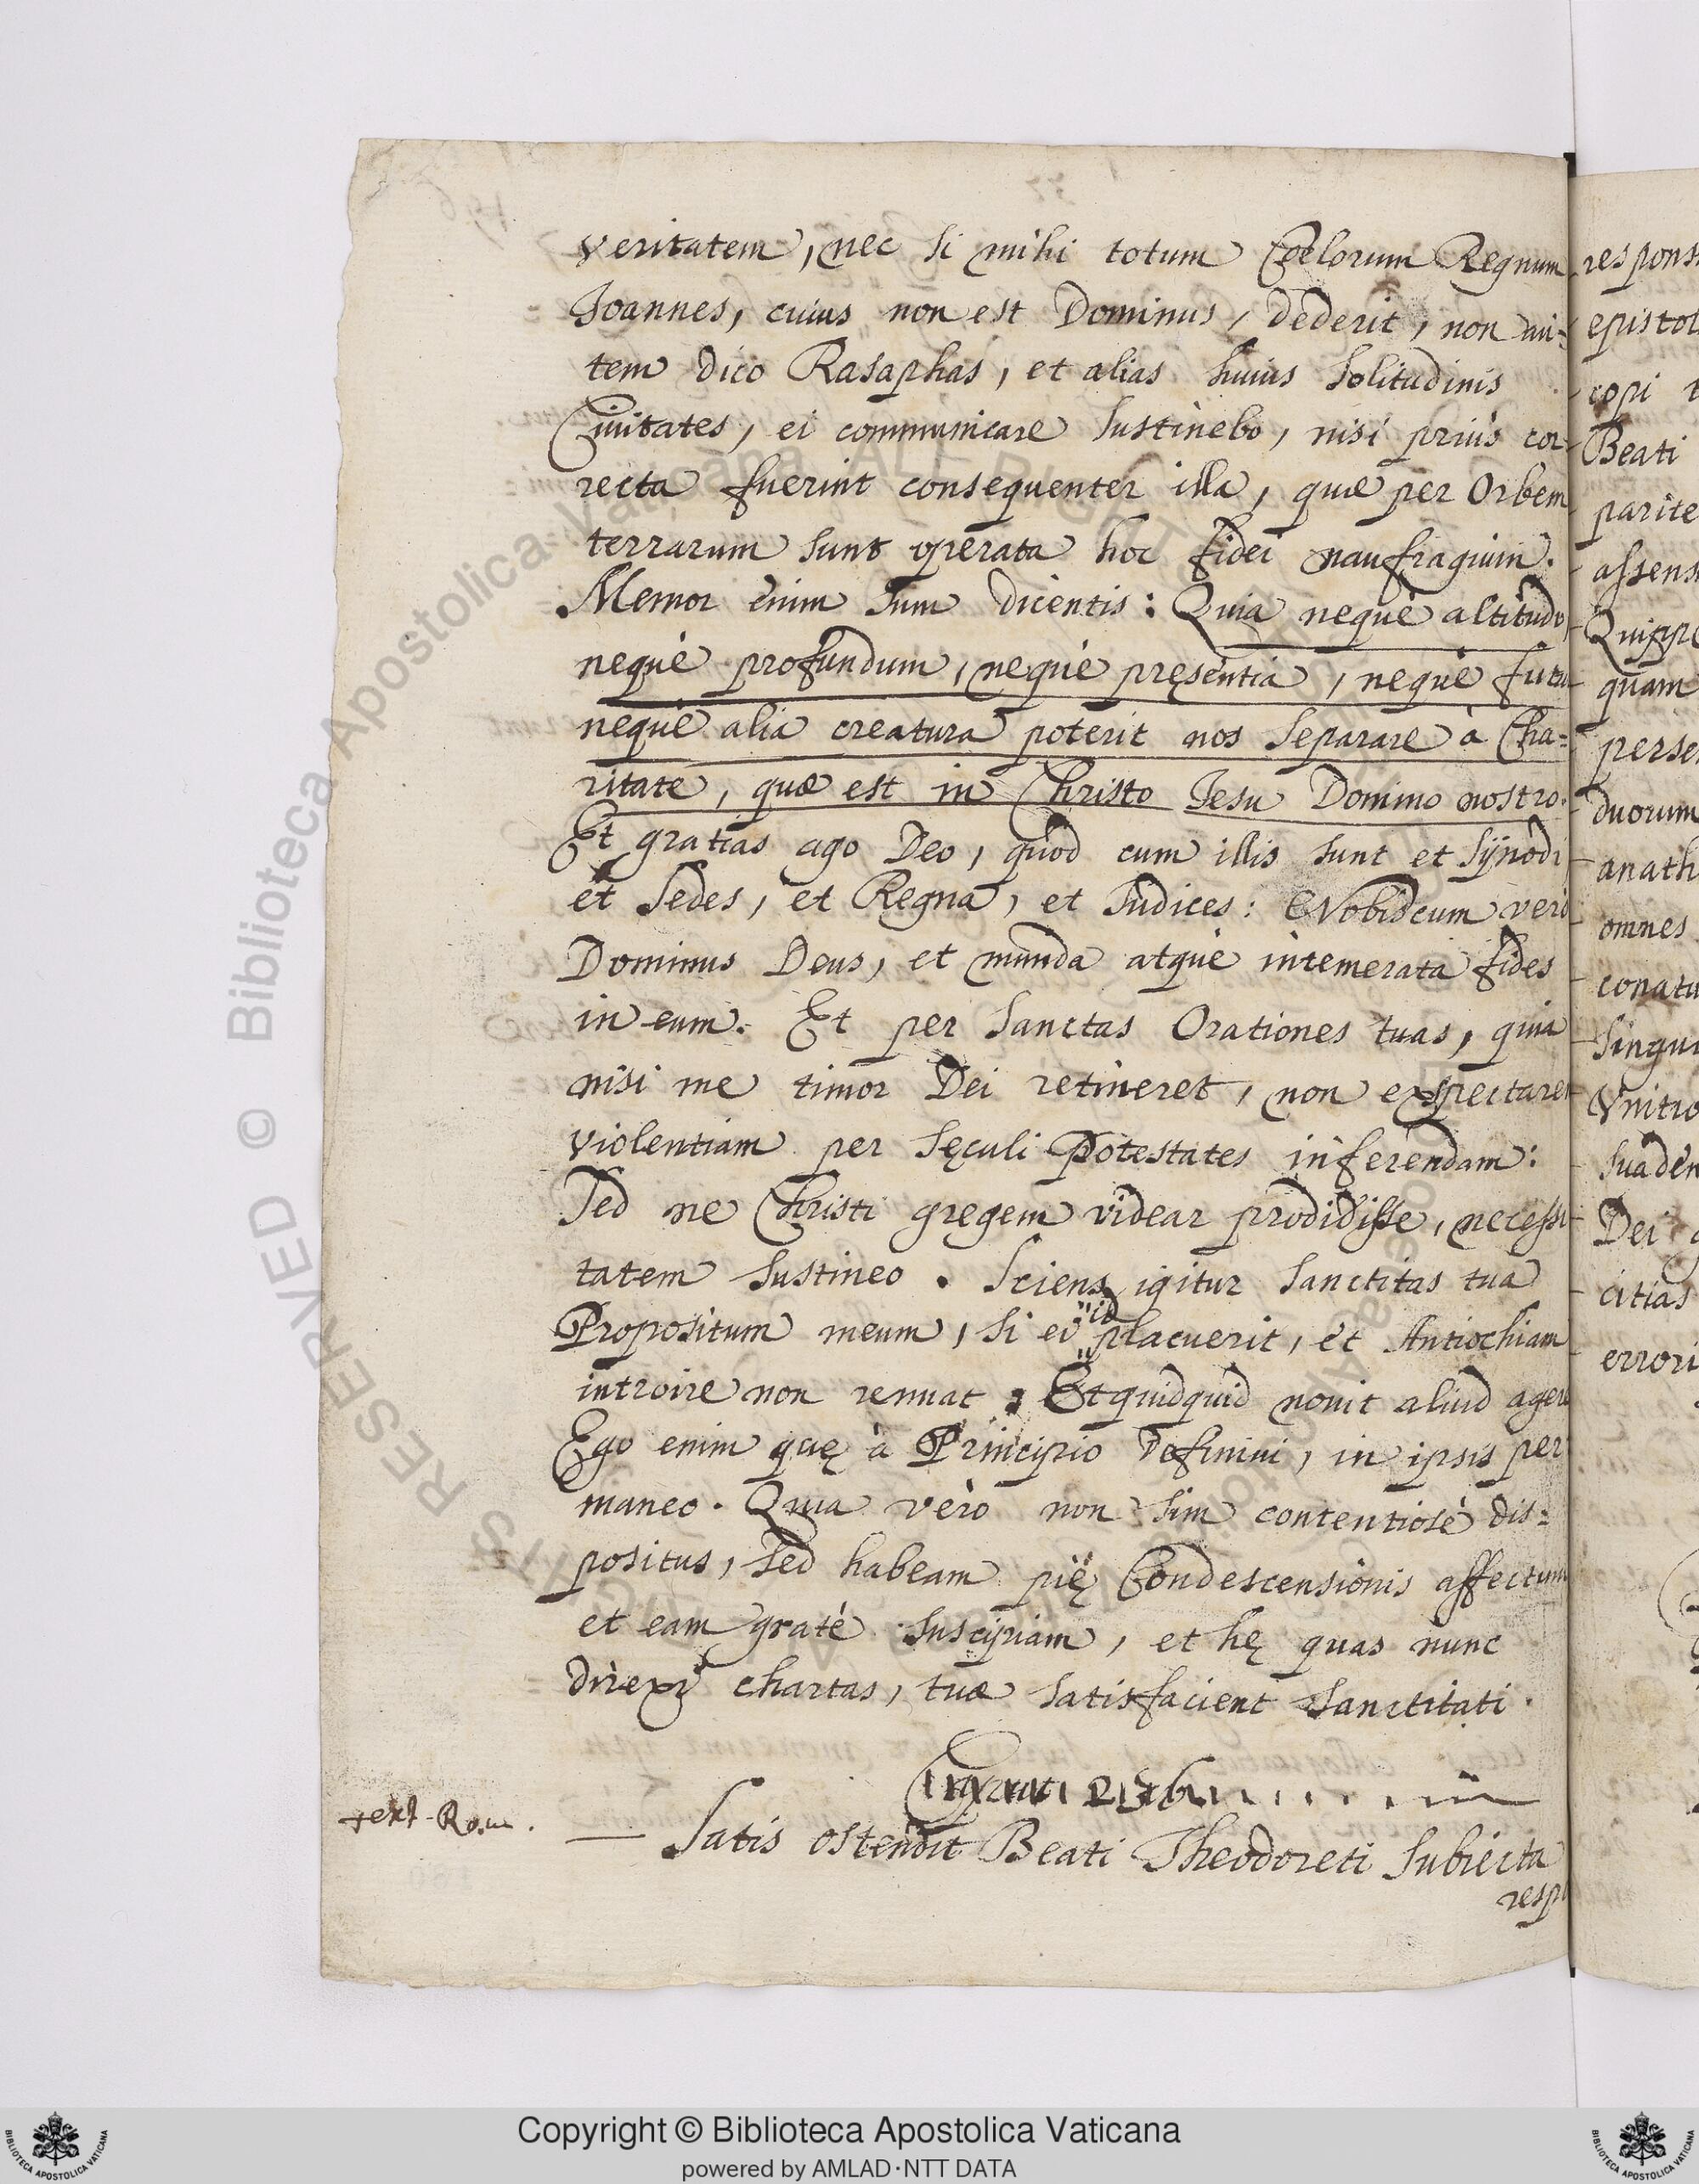 veritatem, nec si mihi totum Cœlorum Regnum
Joannes, cuius non est Dominus, dederit, non au=
tem dico Rasaphas, et alias huius solitudinis
Ciuitates, ei communicare sustinebo, nisi priùs cor-
recta fuerint consequenter illa, quæ per Orbem
terrarum sunt operata hoc fidei naufragium.
Memor enim sum dicentis: Quia nequè altitudo,
nequè profundum, nequè pręsentia, nequè futu
nequè alia creatura poterit nos separare à Cha=
ritate, quæ est in Christo Iesu Domino nostro.
Et gratias ago Deo, quòd cum illis sunt et Sÿnodi
et Sedes, et Regna, et Iudices: Nobiscum verò
Dominus Deus, et munda atquè intemerata fides
in eum. Et per Sanctas Orationes tuas, quia
nisi me timor Dei retineret, non expectarem
violentiam per Sęculi Potestates inferendam:
Sed ne Christi gregem videar prodidisse, necessi
tatem sustineo. Sciens igitur Sanctitas tua
id
Propositum meum, si ei placuerit, et Antiochiam
introire non renuat; Et quidquid nouit aliud agere
Ego enim quę à Principio definiui, in ipsis per
maneo. Quia verò non sim contentiosè dis=
positus, sed habeam pię Condescensionis affectum
et eam gratè suscipiam, et hę quas nunc
direxi chartas, tuæ satisfacient Sanctitati.
text. Rom.
— Satis ostendit Beati Theodoreti Subiecta
resp
respons
epistol
copi t
Beati
parite
assens
Quippe
quam
perse
duorum
anath
omnes
conatu
singu
Vnitio
suaden
Dei
citias
errori
© Biblioteca Apostolica Vaticana. ALL RIGHTS RESERVED
Copyright © Biblioteca Apostolica Vaticana
powered by AMLAD·NTT DATA
BIBLIOTECA APOSTOLICA VATICANA
BIBLIOTECA APOSTOLICA VATICANA